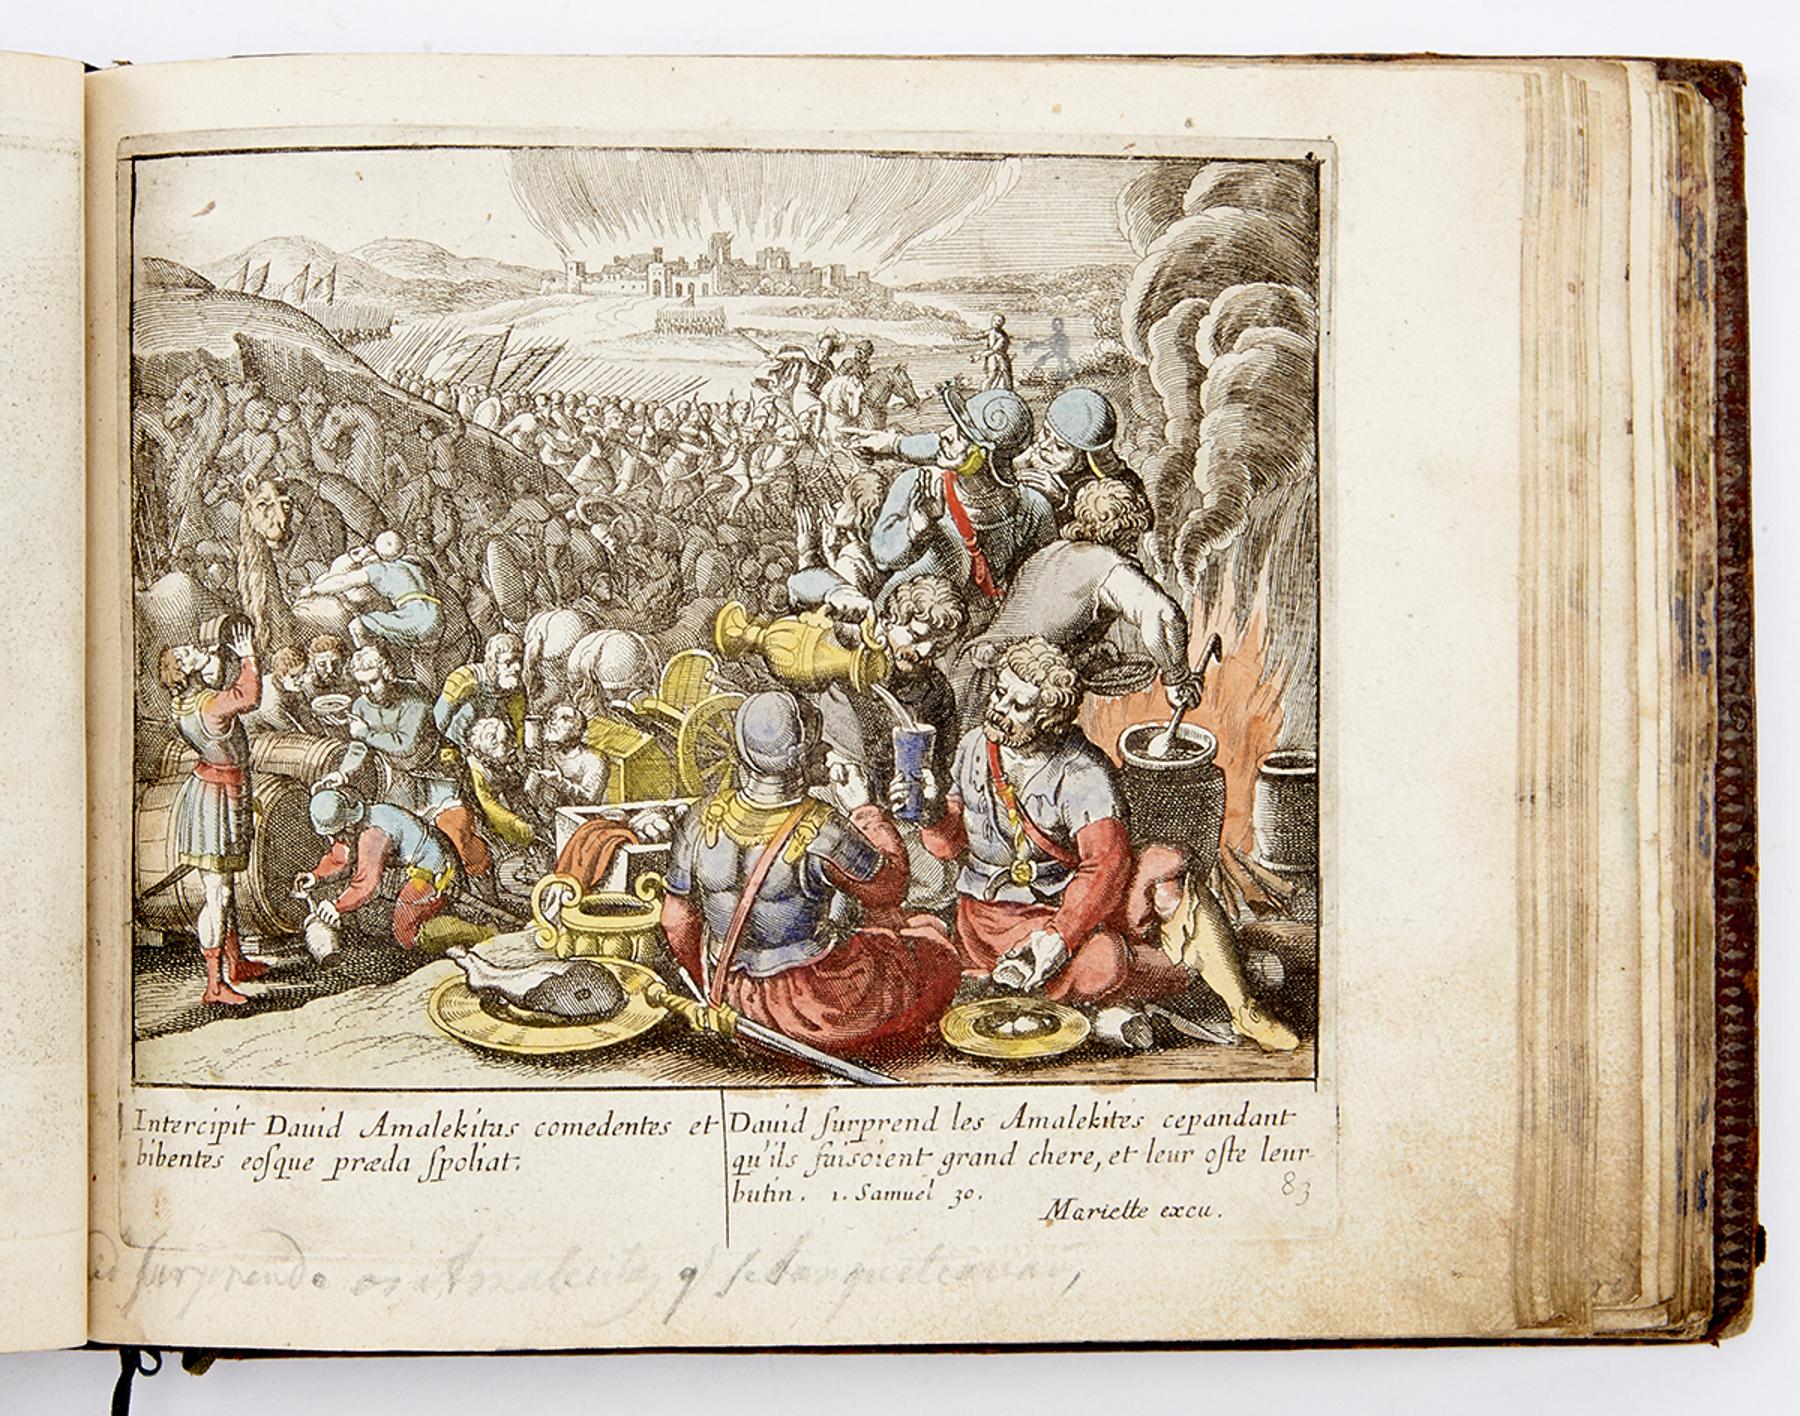 Intercipit Dauid Amalekitas comedentes et
bibentes eosque præda spoliat.
Dauid surprend les Amalekites cepandant
qu'ils faisoient grand chere, et leur oste leur
butin. 1. Samuel 30.
83
Mariette excu.
surprende os Amalekitas q̃ se banqueteavaõ,